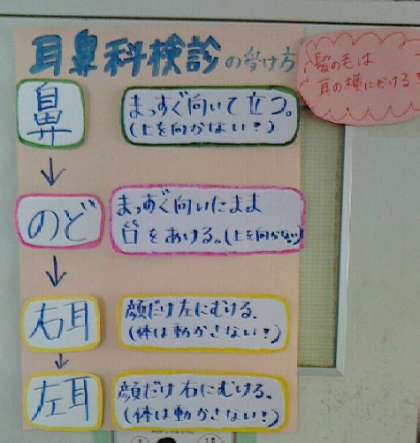 耳鼻科検診の受け方
髪の毛は
耳の横にかける!
鼻
まっすぐ向いて立つ。
(上を向かない!)
↓
のど
まっすぐ向いたまま
口をあける。(上を向かない)
↓
右耳
顔だけ左にむける。
(体は動かさない!)
↓
左耳
顔だけ右にむける。
(体は動かさない!)